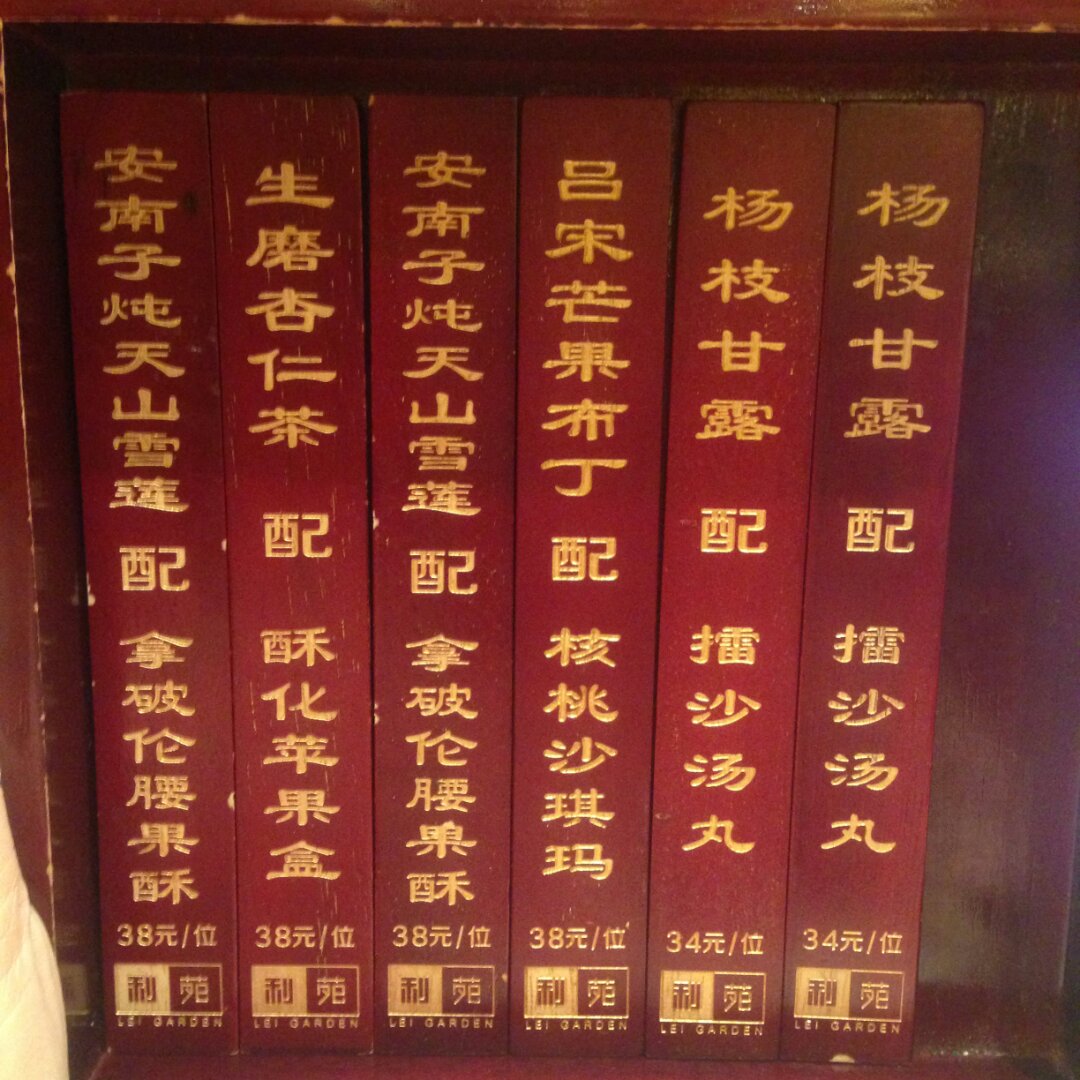 安南子炖天山雪莲 配 拿破伦腰果酥
38元/位
利苑
LEI GARDEN
生磨杏仁茶 配 酥化苹果盒
38元/位
利苑
LEI GARDEN
安南子炖天山雪莲 配 拿破伦腰果酥
38元/位
利苑
LEI GARDEN
吕宋芒果布丁 配 核桃沙琪玛
38元/位
利苑
LEI GARDEN
杨枝甘露 配 擂沙汤丸
34元/位
利苑
LEI GARDEN
杨枝甘露 配 擂沙汤丸
34元/位
利苑
LEI GARDEN